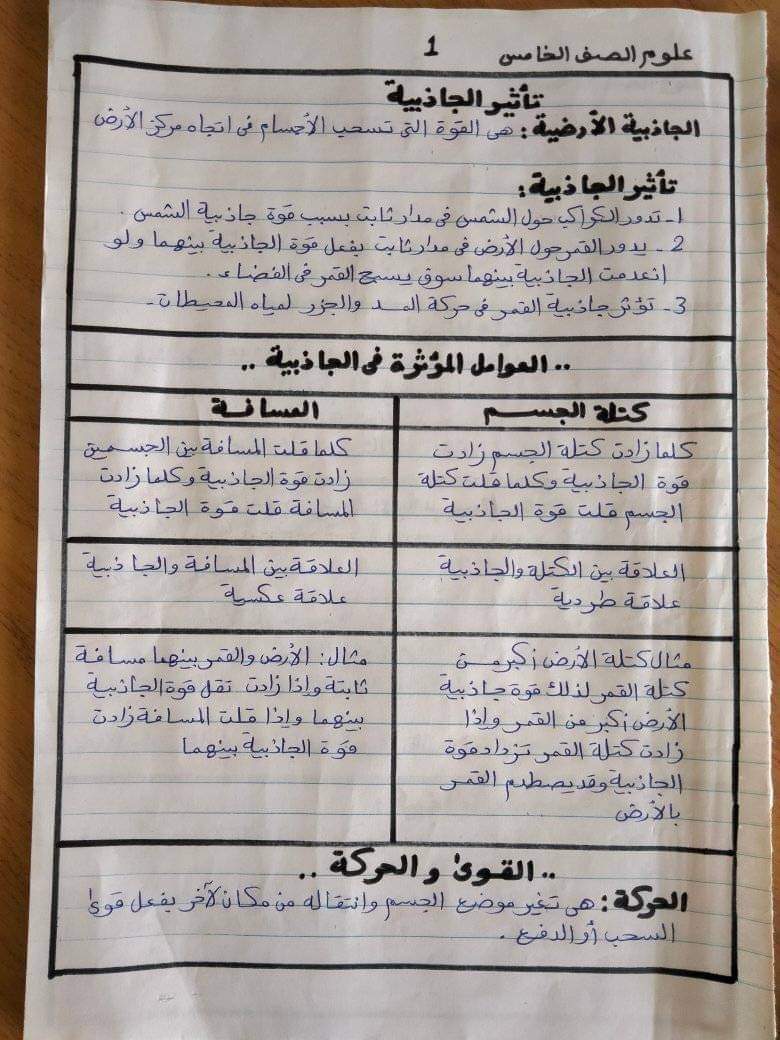 علوم الصف الخامس 1
تأثير الجاذبية
الجاذبية الأرضية: هى القوة التى تسحب الأجسام فى اتجاه مركز الأرض
تأثير الجاذبية:
1- تدور الكواكب حول الشمس فى مدار ثابت بسبب قوة جاذبية الشمس.
2- يدور القمر حول الأرض فى مدار ثابت بفعل قوة الجاذبية بينهما ولو
انعدمت الجاذبية بينهما سوق يسبح القمر فى الفضاء.
3- تؤثر جاذبية القمر فى حركة المد والجزر لمياه المحيطات.
.. العوامل المؤثرة فى الجاذبية ..
كتلة الجسم
كلما زادت كتلة الجسم زادت
قوة الجاذبية وكلما قلت كتلة
الجسم قلت قوة الجاذبية
العلاقة بين الكتلة والجاذبية
علاقة طردية
مثال كتلة الأرض أكبر من
كتلة القمر لذلك قوة جاذبية
الأرض أكبر من القمر وإذا
زادت كتلة القمر تزداد قوة
الجاذبية وقد يصطدم القمر
بالأرض
المسافة
كلما قلت المسافة بين الجسمين
زادت قوة الجاذبية وكلما زادت
المسافة قلت قوة الجاذبية
العلاقة بين المسافة والجاذبية
علاقة عكسية
مثال: الأرض والقمر بينهما مسافة
ثابتة وإذا زادت تقل قوة الجاذبية
بينهما وإذا قلت المسافة زادت
قوة الجاذبية بينهما
.. القوى والحركة ..
الحركة: هى تغير موضع الجسم وانتقاله من مكان لآخر بفعل قوى
السحب أو الدفع.